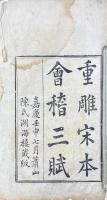 重雕宋本
會稽三賦
嘉慶壬申七月蕭山
陳氏湖海樓藏版